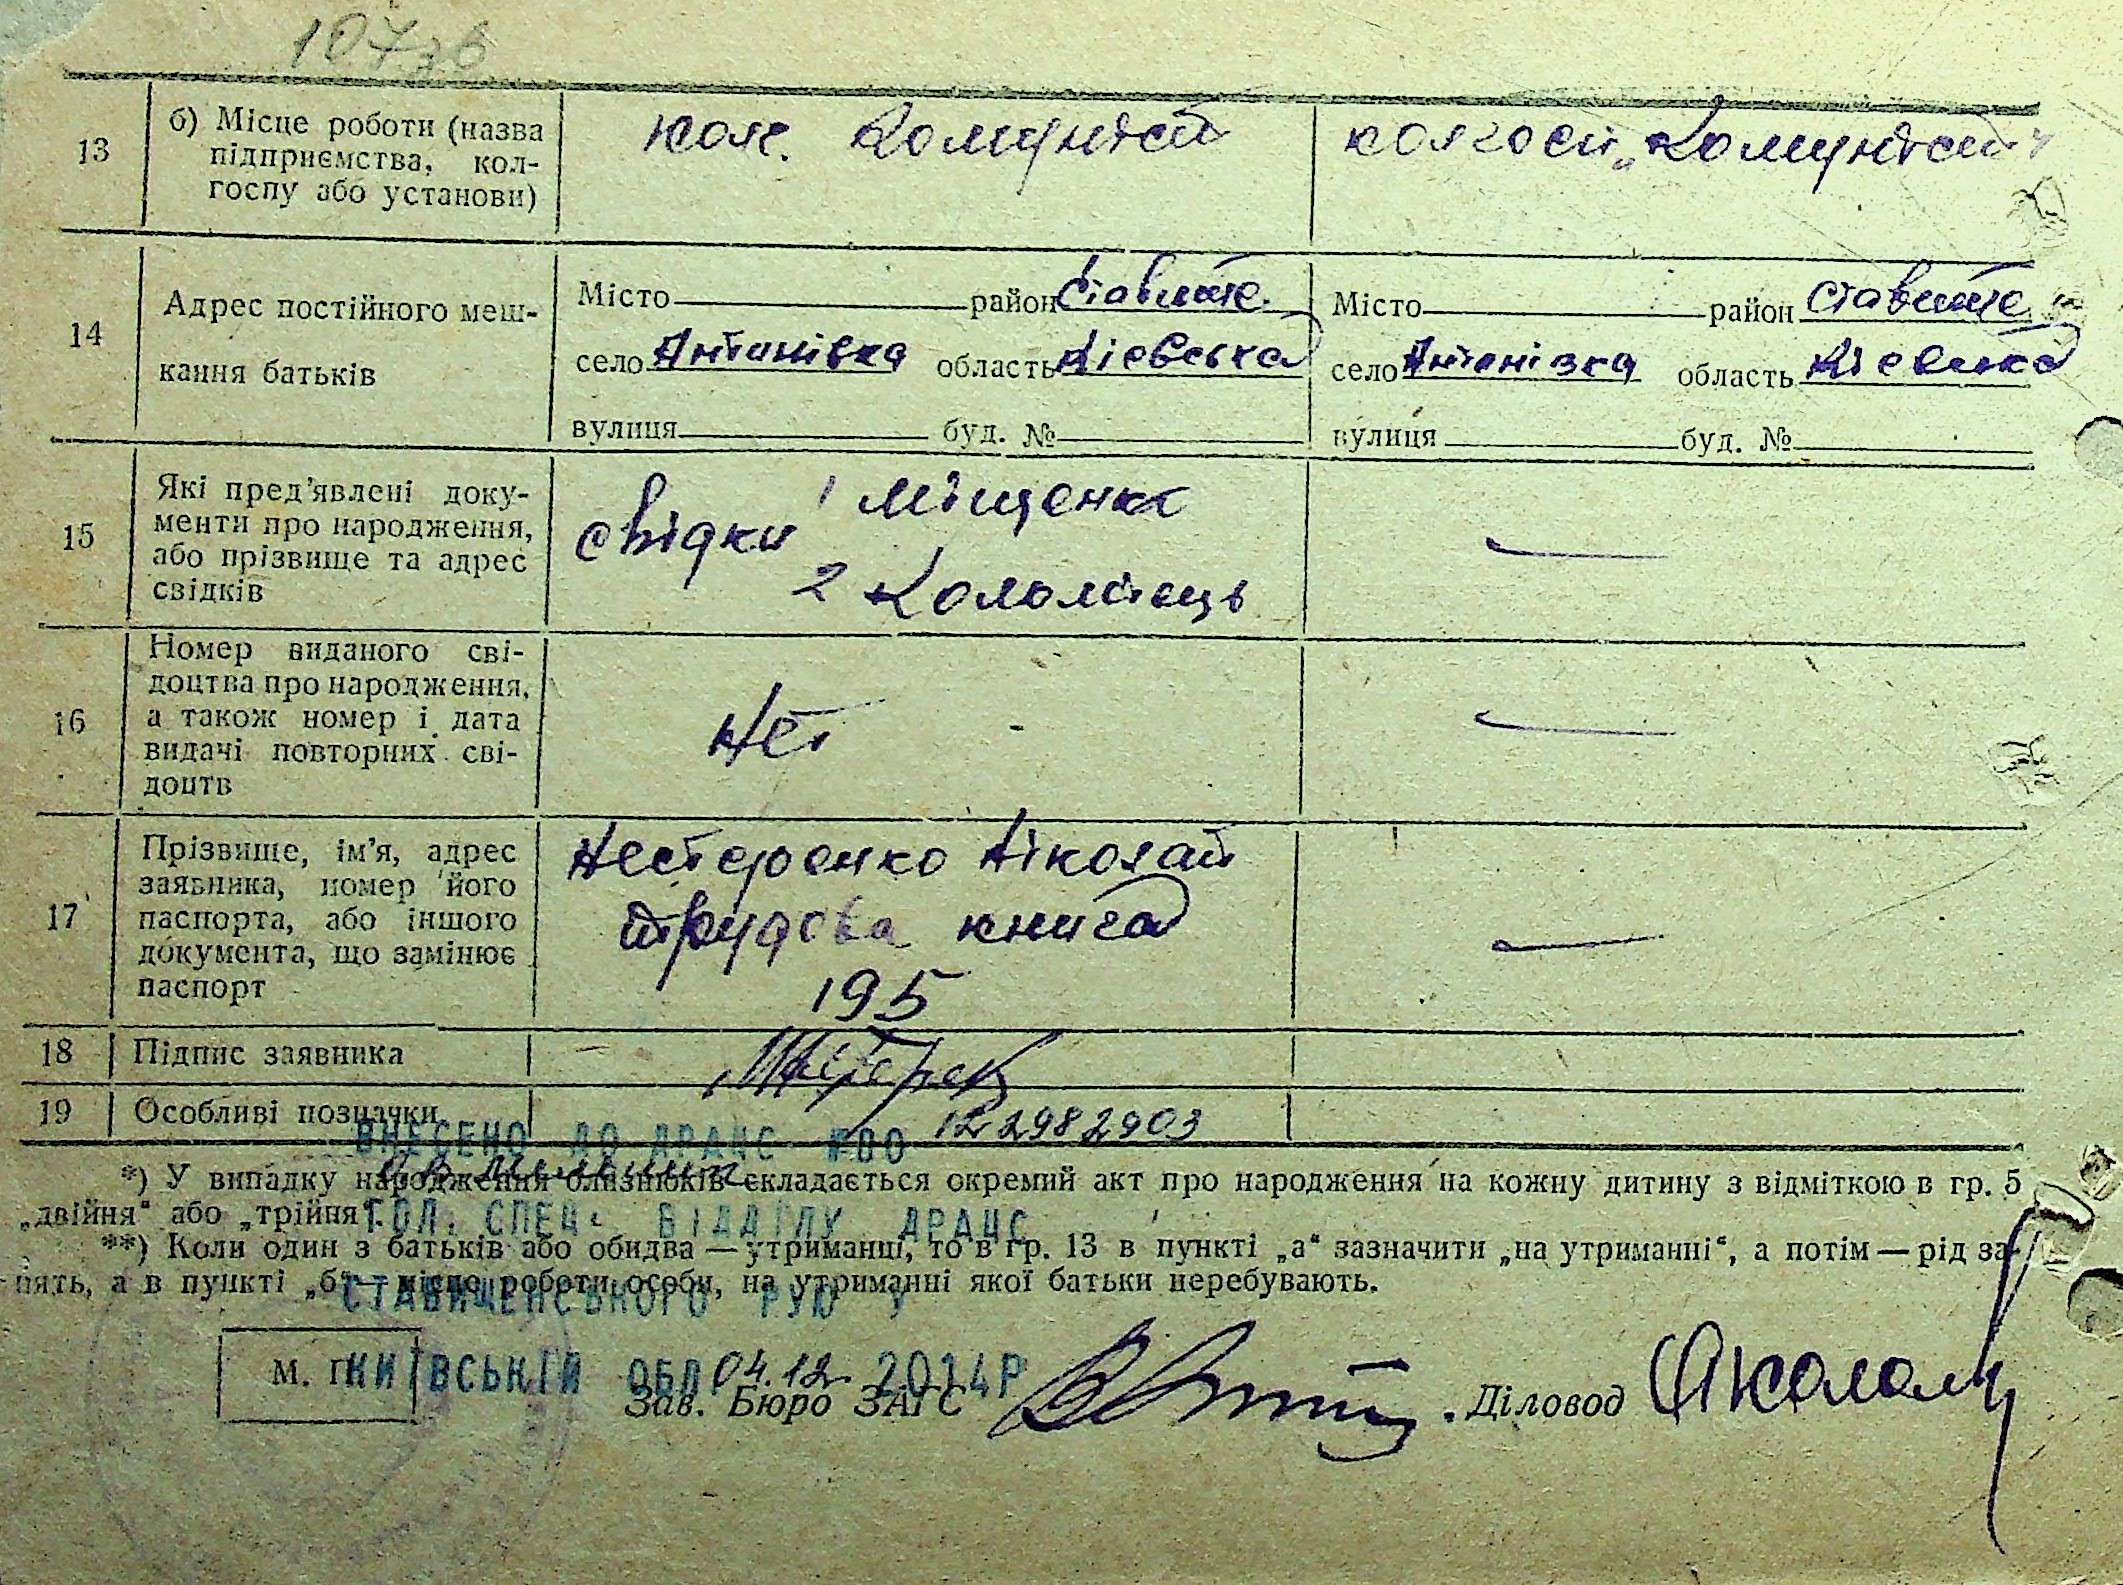 107зв
13 б) Місце роботи (назва підприємства, колгоспу або установи) кол. Комуніст колгосп „Комуніст“
14 Адрес постійного меш-
кання батьків
Місто район Ставище. Місто район Ставище
село Антонівка область Кієвська село Антонівка область Кієвська
вулиця буд. № вулиця буд. №
15 Які пред’явлені доку-
менти про народження,
або прізвище та адрес
свідків
свідки 1 Міщенко
2 Коломієць
16 Номер виданого сві-
доцтва про народження,
а також номер і дата
видачі повторних сві-
доцтв
Нет
17 Прізвище, ім’я, адрес
заявника, номер його
паспорта, або іншого
документа, що замінює
паспорт
Нестеренко Ніколай
трудова книга
195
18 Підпис заявника
19 Особливі позначки 12 2982903
ВНЕСЕНО ДО ДРАЦС
*) У випадку народження близнюків складається окремий акт про народження на кожну дитину з відміткою в гр. 5
„двійня“ або „трійня“.
ГОЛ. СПЕЦ. ВІДДІЛУ ДРАЦС
**) Коли один з батьків або обидва — утриманці, то в гр. 13 в пункті „а“ зазначити „на утриманні“, а потім — рід за-
нять, а в пункті „б“ — місце роботи особи, на утриманні якої батьки перебувають.
СТАВИЩЕНСЬКОГО РУЮ У
М. П.
КИЇВСЬКІЙ ОБЛ. 04.12. 2014Р
Зав. Бюро ЗАГС Діловод